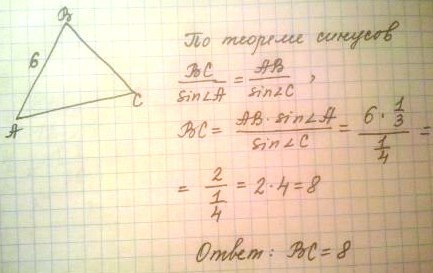 B
6
A
C
По теореме синусов
BC/sin∠A = AB/sin∠C,
BC = AB·sin∠A/sin∠C = 6·1/3 / 1/4 =
= 2 / 1/4 = 2·4 = 8
Ответ: BC = 8